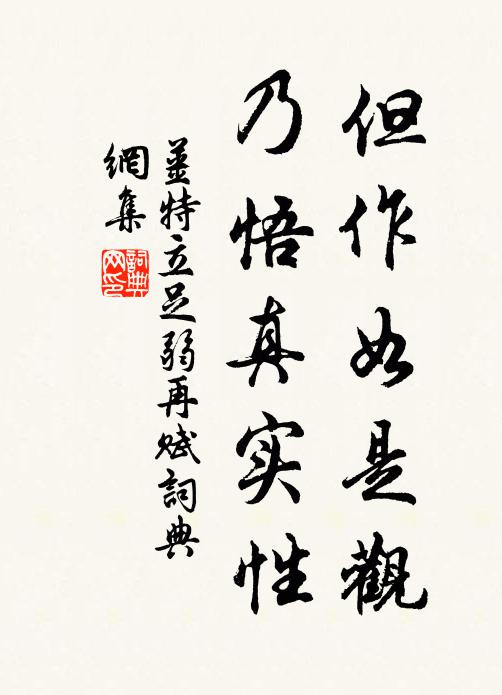 但作如是觀
乃悟真实性
姜特立足弱再赋詞典
網集
詞典网印